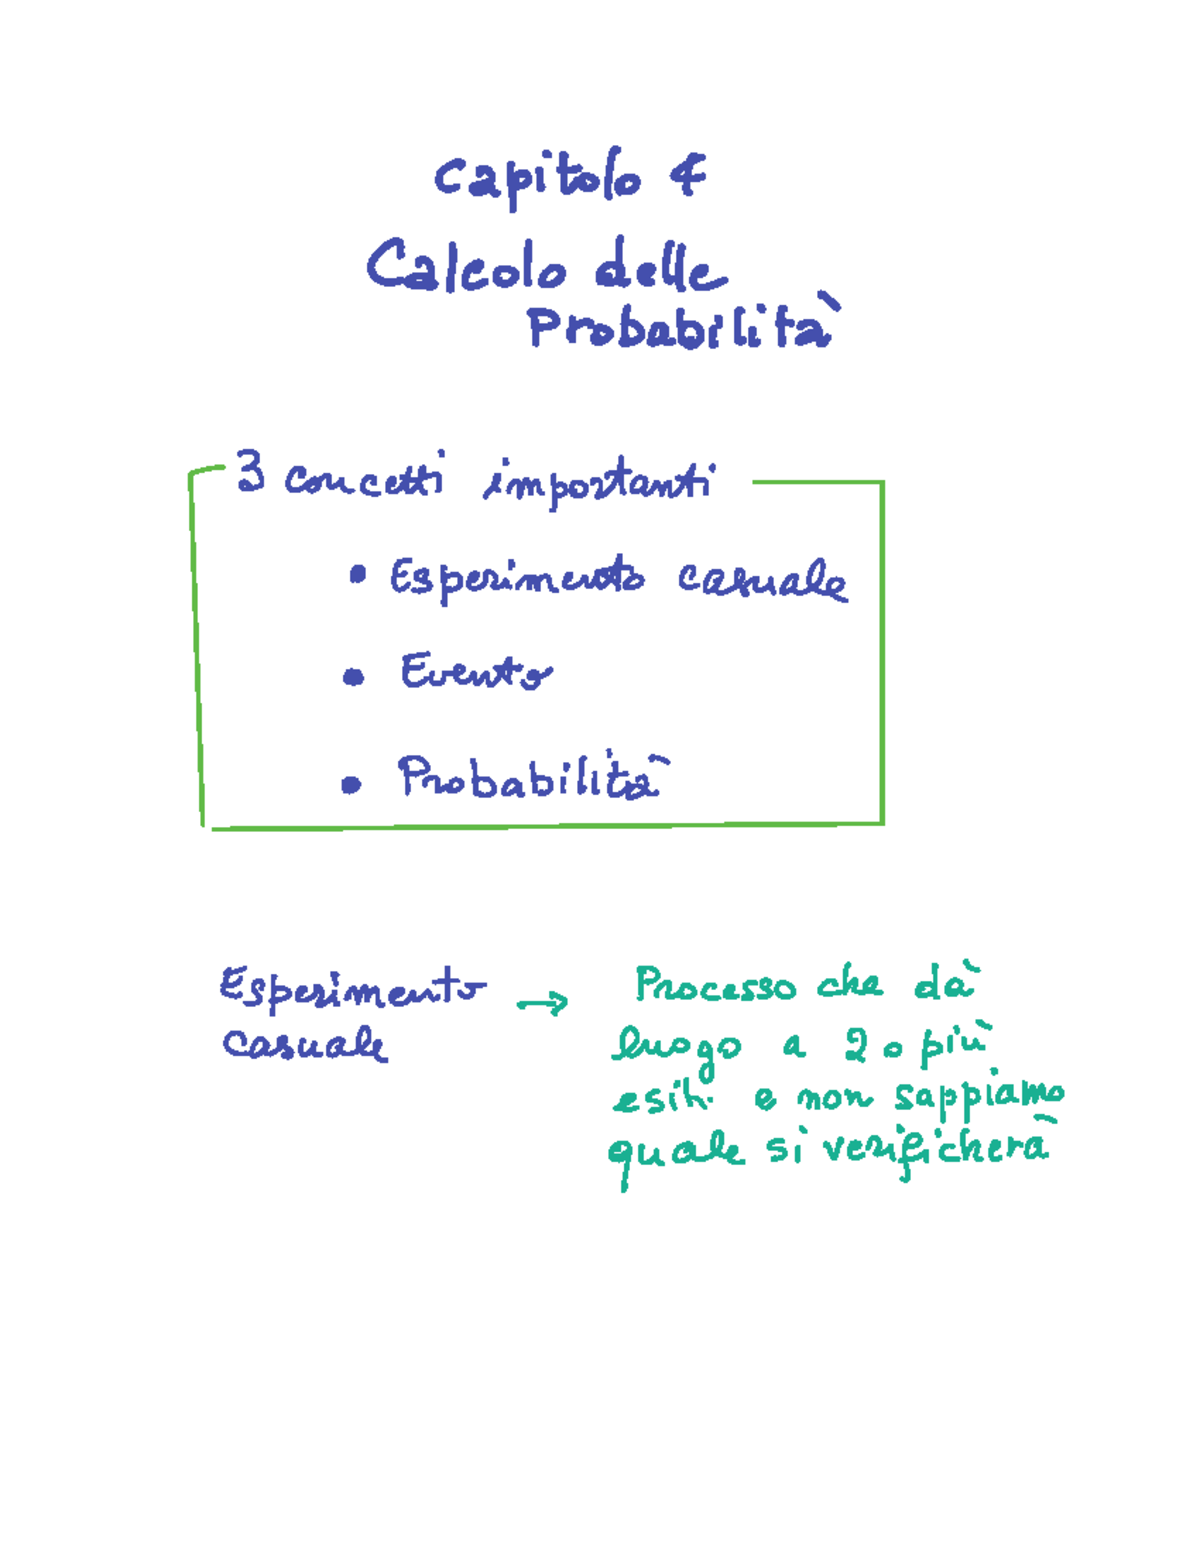 Capitolo 4
Calcolo delle
Probabilità
3 concetti importanti
• Esperimento casuale
• Evento
• Probabilità
Esperimento → Processo che dà
casuale luogo a 2 o più
esiti e non sappiamo
quale si verificherà